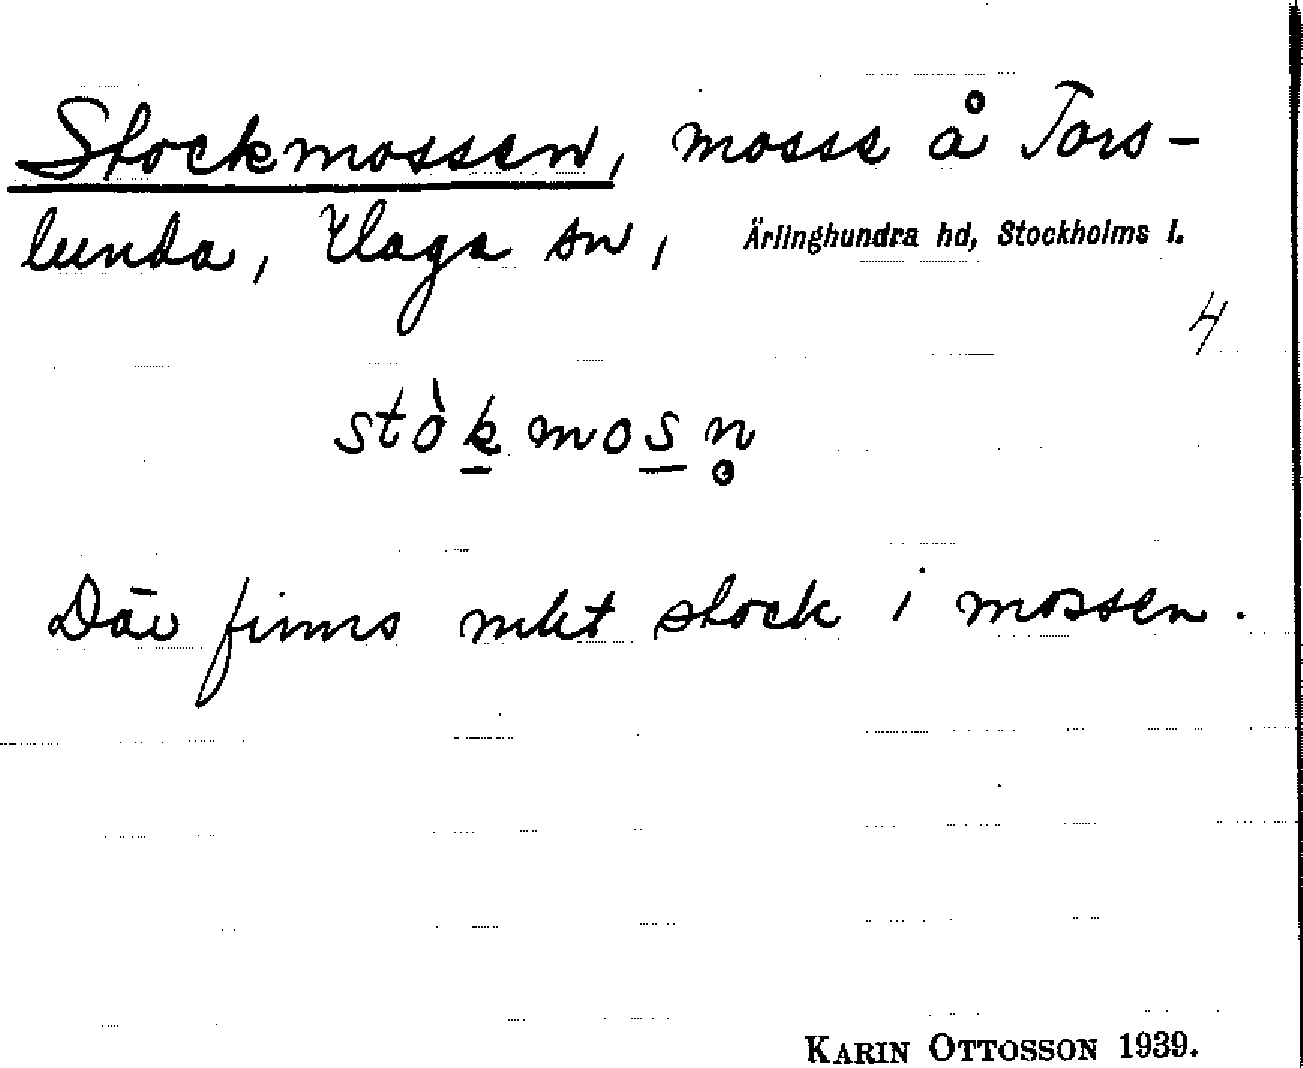 Stockmossen, mosse å Tors-
lunda, Vlaga sn, Ärlinghundra hd, Stockholms l.
4
stòk̲mos̲n̥
Där finns mkt stock i mossen.
KARIN OTTOSSON 1939.